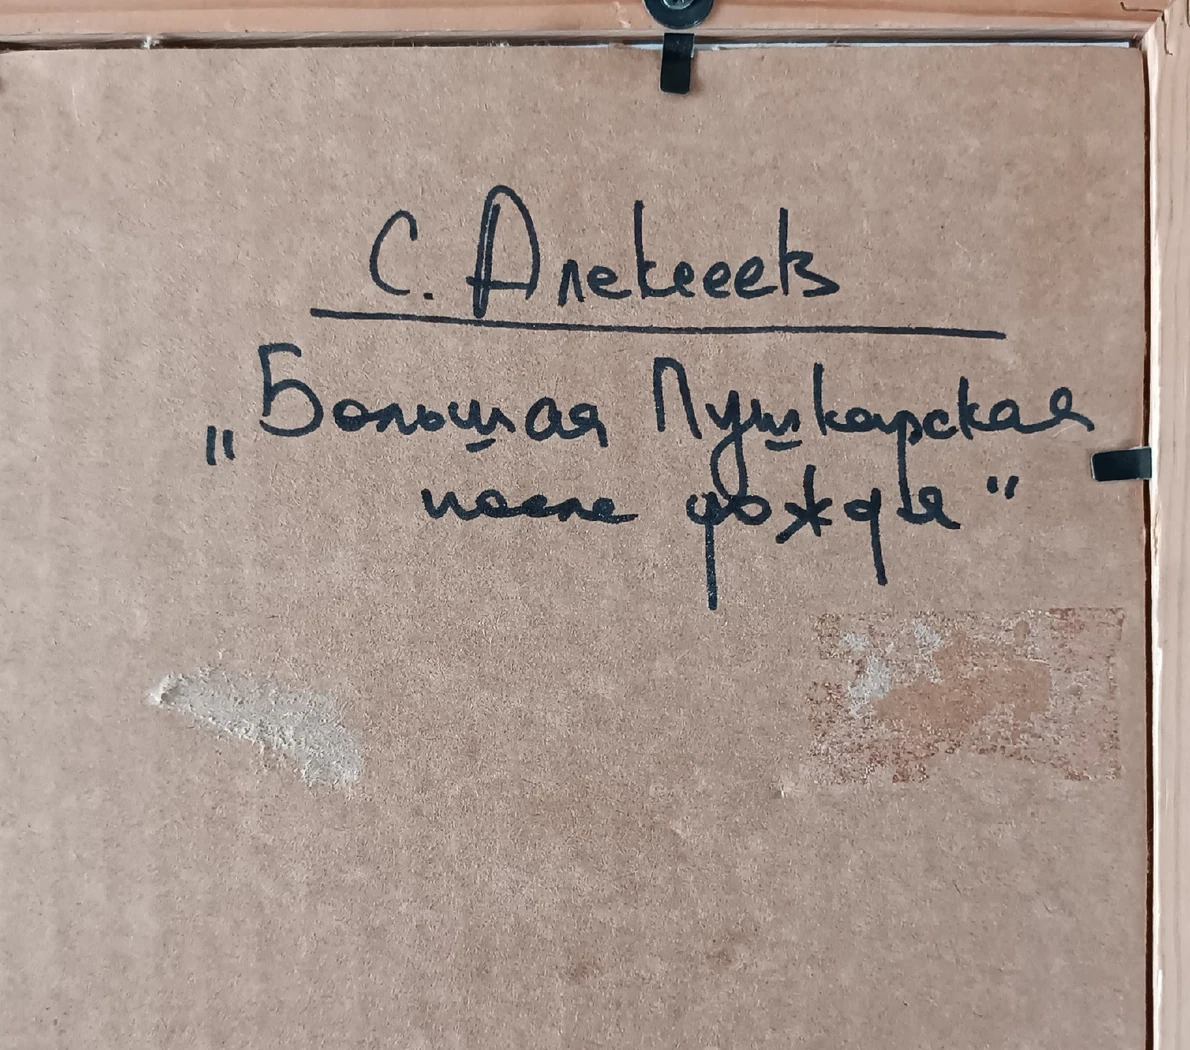 С. Алексеев
„Большая Пушкарская
после дождя"